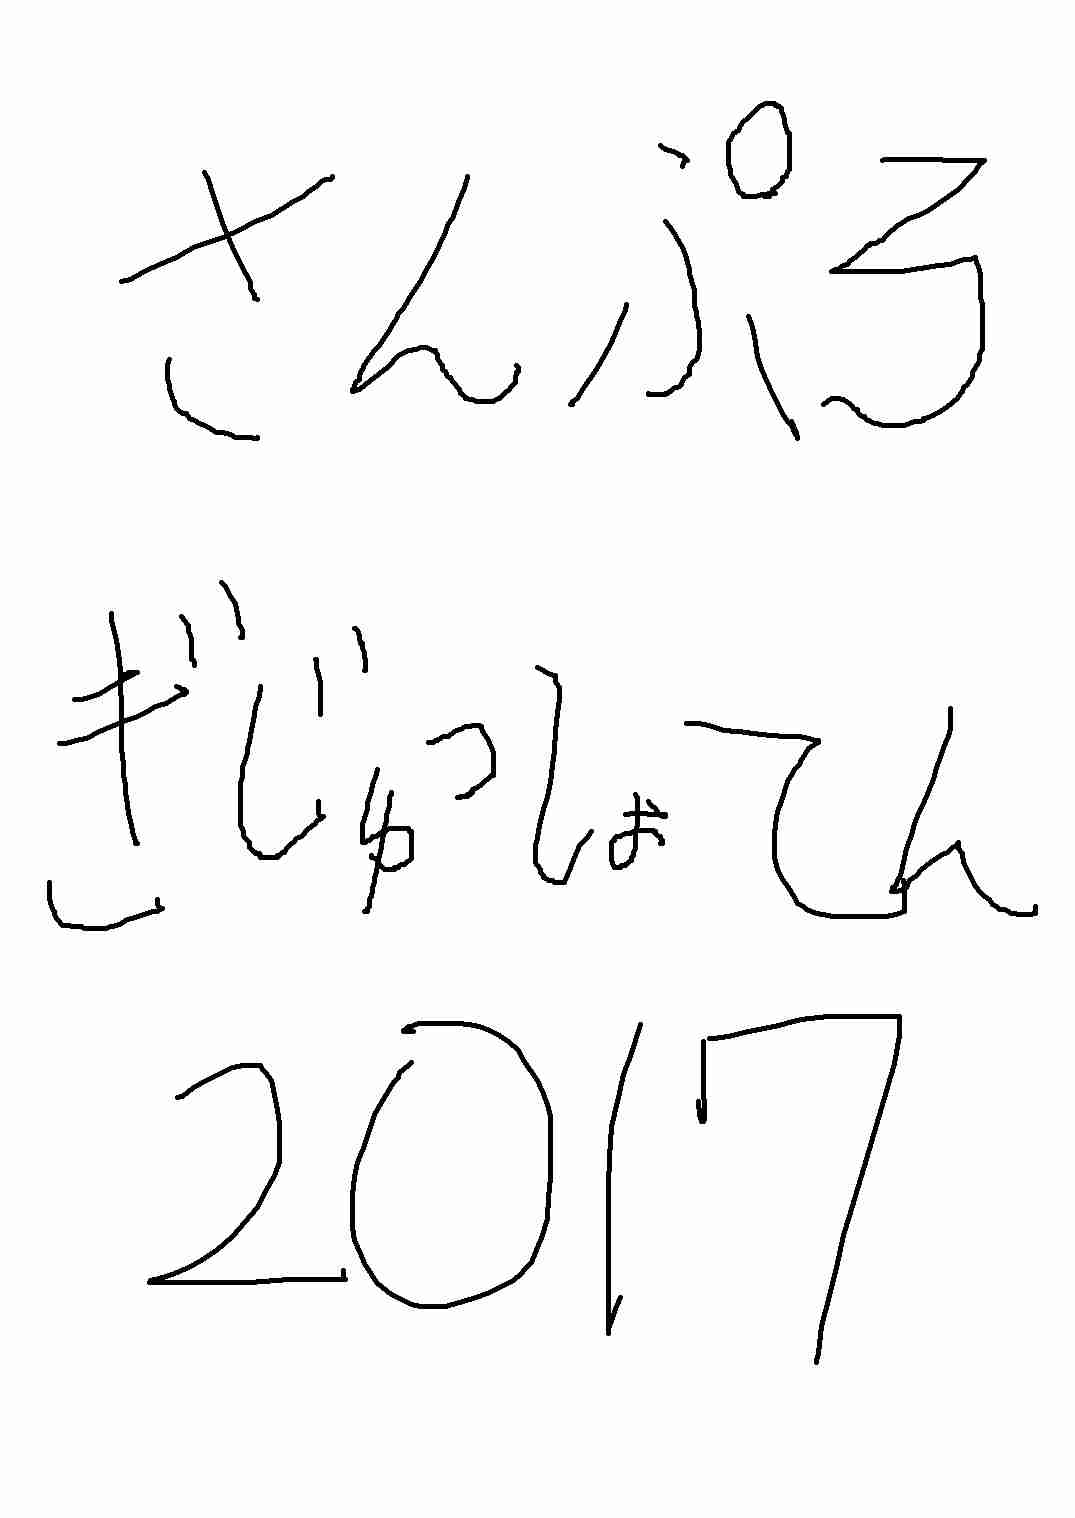 さんぷろ
ぎじゅつしょてん
2017